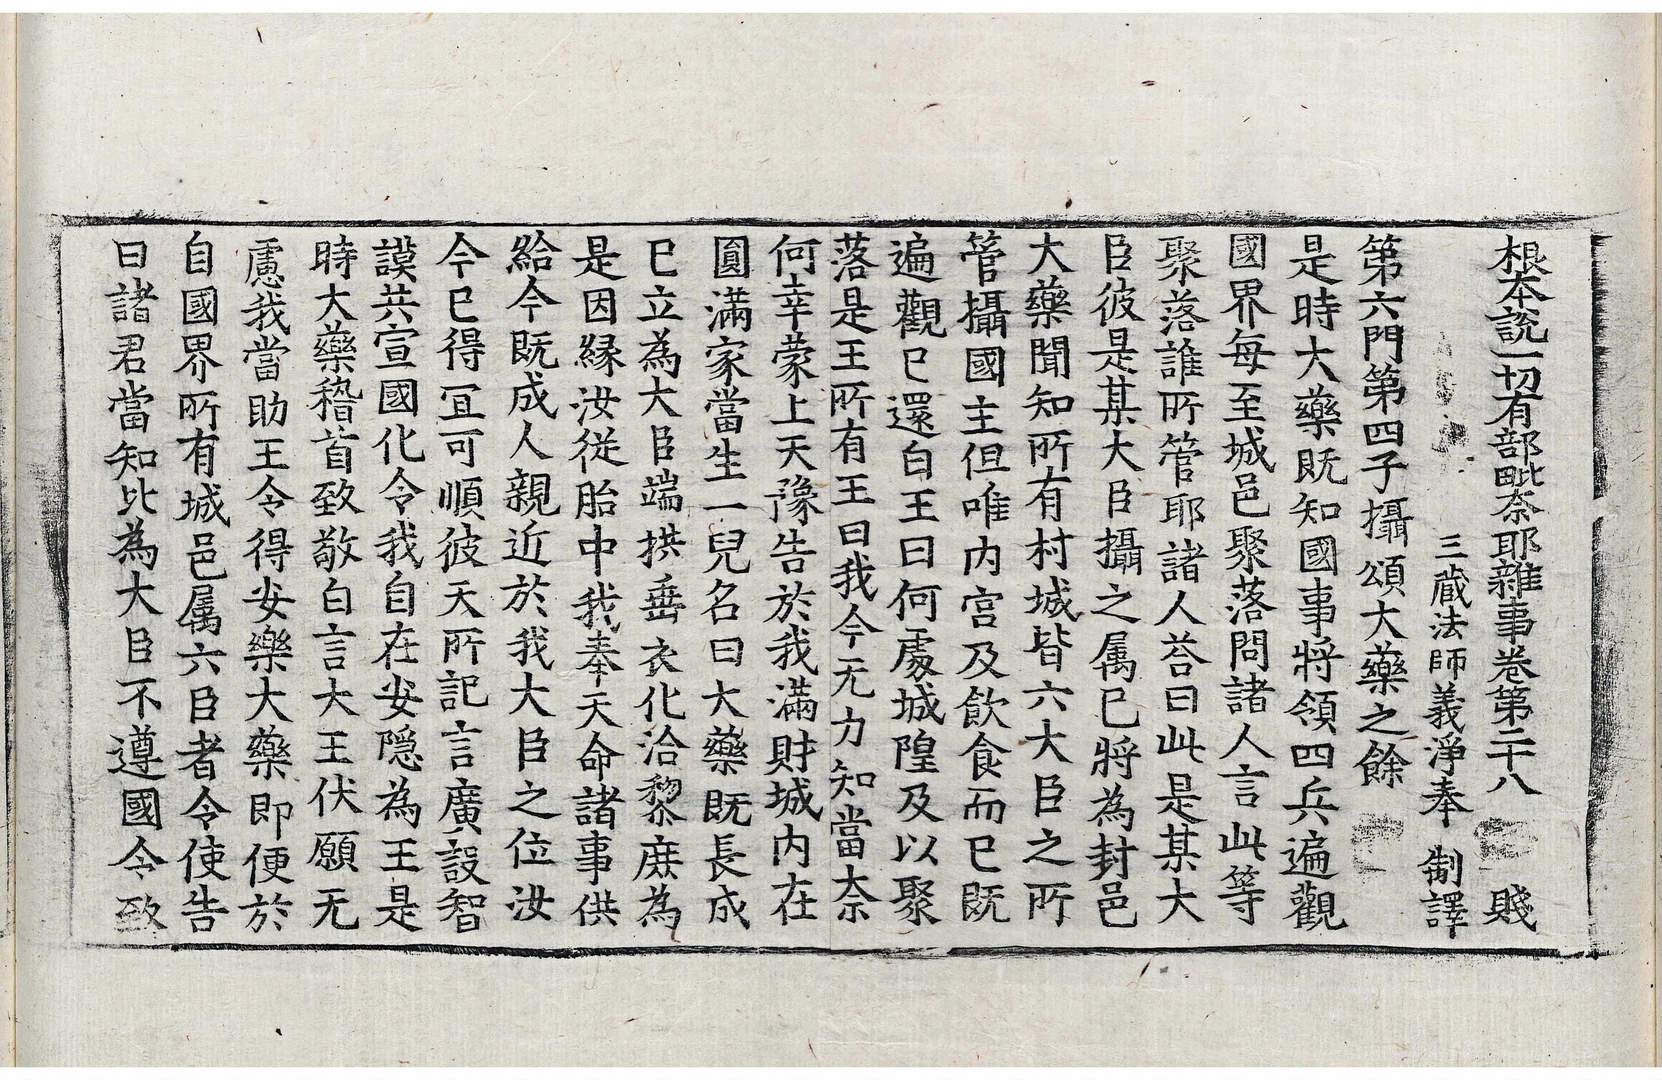 根本說一切有部毗奈耶雜事卷第二十八 賤
三藏法師義淨奉 制譯
第六門第四子攝頌大藥之餘
是時大藥既知國事將領四兵遍觀
國界每至城邑聚落問諸人言此等
聚落誰所管耶諸人荅曰此是某大
臣彼是某大臣攝之属已將為封邑
大藥聞知所有村城皆六大臣之所
管攝國主但唯內宮及飲食而已既
遍觀已還白王曰何處城隍及以聚
落是王所有王曰我今无力知當奈
何幸蒙上天豫告於我滿財城內在
圓滿家當生一兒名曰大藥既長成
已立為大臣端拱垂衣化洽黎庶為
是因緣汝從胎中我奉天命諸事供
給今既成人親近於我大臣之位汝
今已得冝可順彼天所記言廣設智
謨共宣國化令我自在安隱為王是
時大藥稽首致敬白言大王伏願无
慮我當助王令得安樂大藥即便於
自國界所有城邑属六臣者令使告
曰諸君當知比為大臣不遵國令致